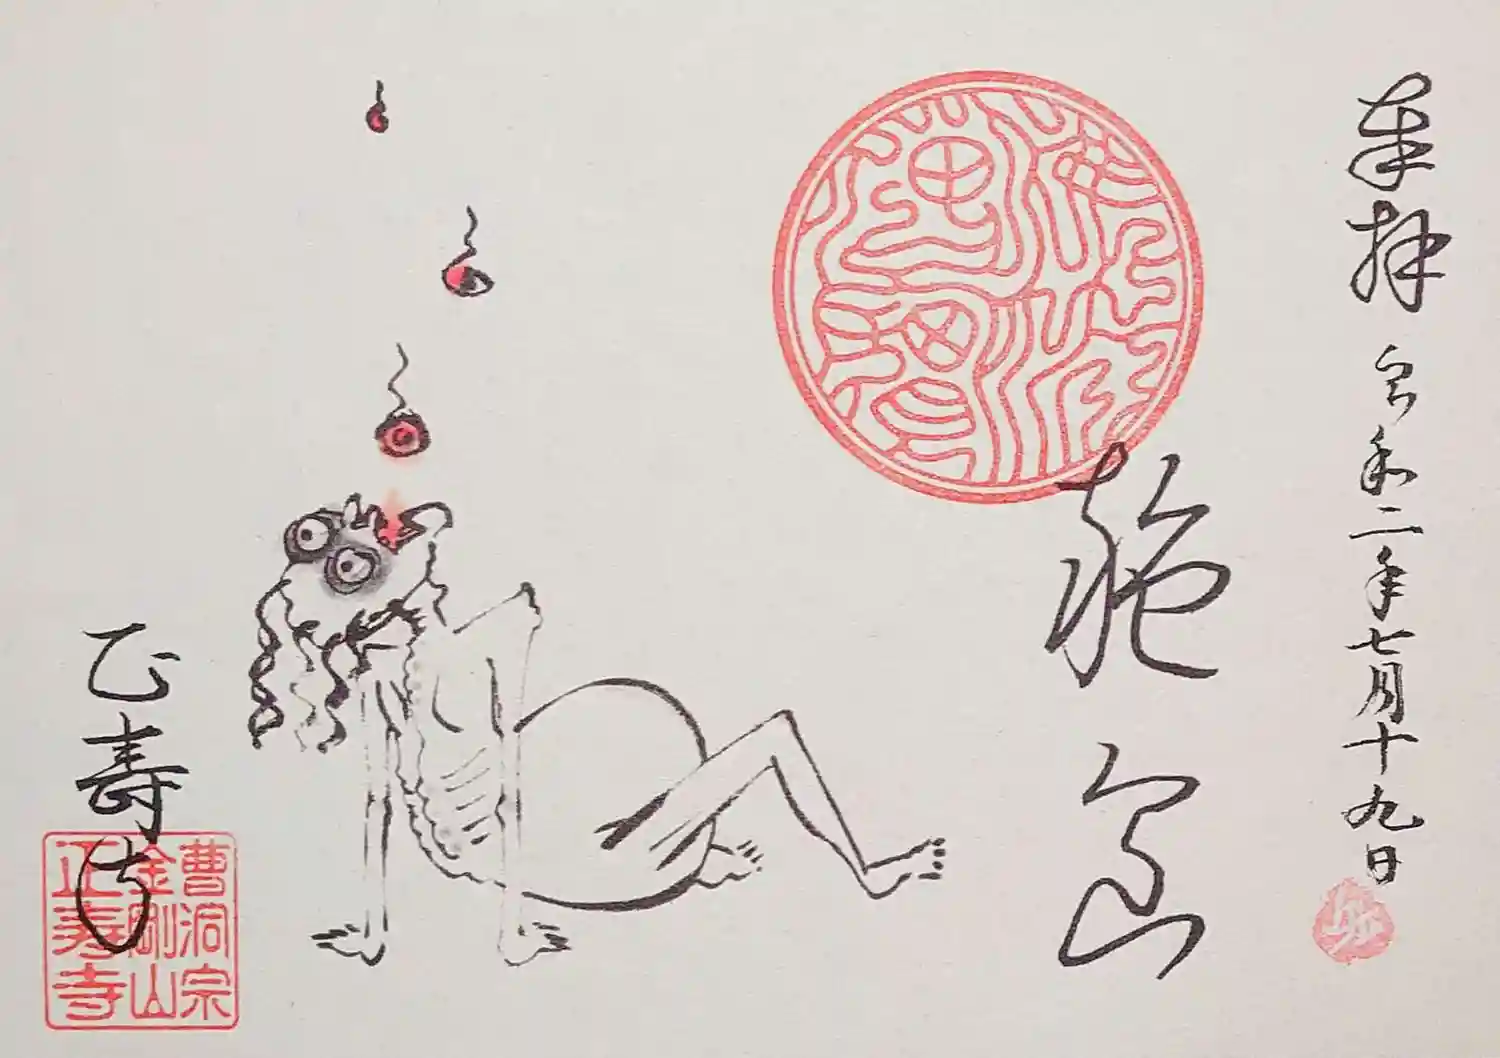 奉拝 令和二年七月十九日
施食
正壽寺
曹洞宗
金剛山
正寿寺